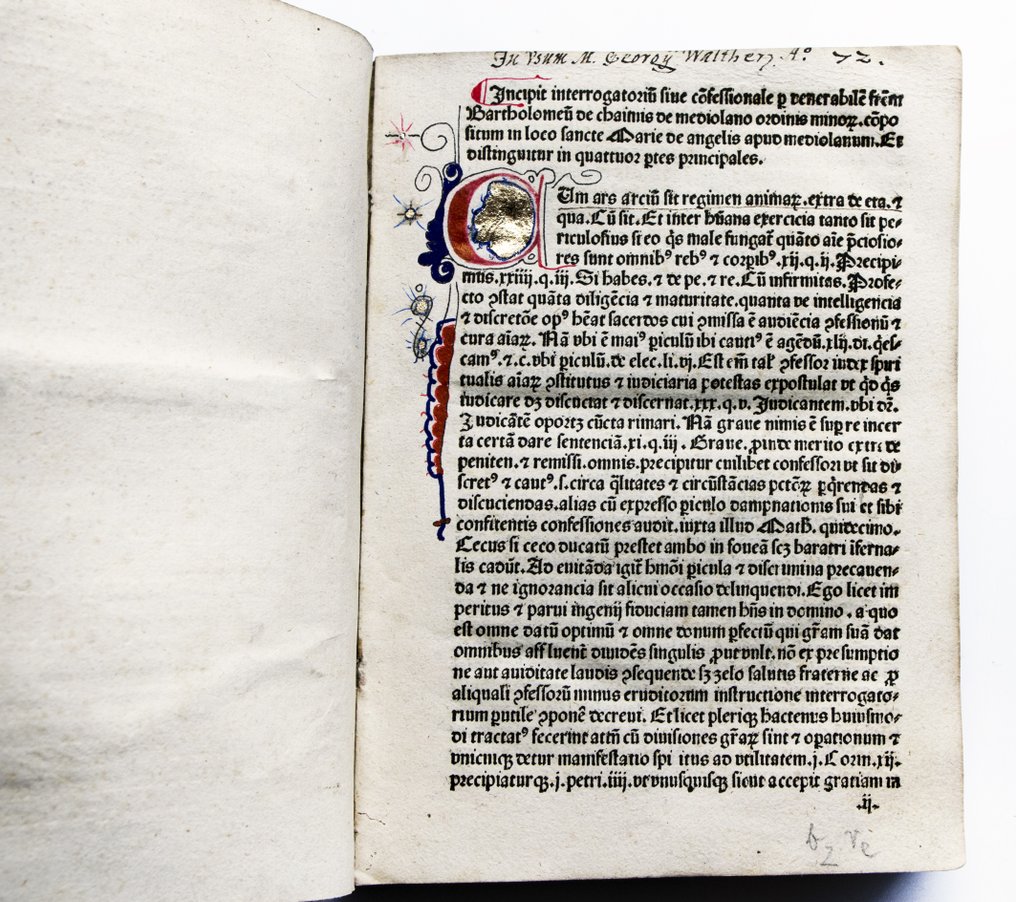 In Vsum M. Georgÿ Waltherj A.° 72.
Incipit interrogatoriū siue cōfessionale ꝑ venerabilē fr̄em
Bartholomeū de chaimis de mediolano ordinis minoꝝ.cōpo
situm in loco sancte Marie de angelis apud mediolanum.Et
distinguitur in quattuor ꝑtes principales.
CUm ars arciū sit regimen animaꝝ.extra de eta.⁊
qua.Cū sit.Et inter hūana exercicia tanto sit pe-
riculosius si eo q̄s male fungat̄ quāto aīe p̄ciosio-
res sunt omnibꝰ rebꝰ ⁊ corꝑibꝰ.xij.q.ij.Precipi-
mus.xxiiij.q.iij.Si habes.⁊ de pe.⁊ re.Cū infirmitas.Profe-
cto ꝯstat quāta diligēcia ⁊ maturitate.quanta ve intelligencia
⁊ discretōe opꝰ hēat sacerdos cui ꝯmissa ē audiēcia ꝯfessionū ⁊
cura aīaꝝ. Nā vbi ē maiꝰ ꝑiculū ibi cautiꝰ ē agēdū.xlij.di.q̄es-
camꝰ.⁊.c.vbi ꝑiculū.de elec.li.vj.Est em̄ tal' ꝯfessor iudex spiri
tualis aīaꝝ ꝯstitutus ⁊ iudiciaria potestas expostulat vt qd̄ q̄s
iudicare dꝫ discuciat ⁊ discernat.xxx.q.v. Judicantem.vbi dr̄.
Judicātē oportꝫ cūcta rimari. Nā graue nimis ē suꝑ re incer
ta certā dare sentenciā.xi.q.iij. Graue.ꝓinde merito extra de
peniten.⁊ remissi.omnis.precipitur cuilibet confessori vt sit di
scretꝰ ⁊ cautꝰ.s.circa q̄litates ⁊ circūstācias pctōꝝ ꝑq̄rendas ⁊
discuciendas.alias cū expresso ꝑiculo dampnationis sui et sibi
confitentis confessiones audit.iuxta illud Math. quidecimo.
Cecus si ceco ducatū prestet ambo in foueā scꝫ baratri īferna-
lis cadūt.Ad euitāda igit̄ hmōi ꝑicula ⁊ discrimina precauen-
da ⁊ ne ignorancia sit alicui occasio delinquendi.Ego licet im
peritus ⁊ parui ingenij fiduciam tamen hn̄s in domino . a quo
est omne datū optimū ⁊ omne donum ꝑfectū qui gr̄am suā dat
omnibus affluent̄ diuidēs singulis ꝓut vult.nō ex presumptio
ne aut auiditate laudis ꝯsequende sꝫ zelo salutis fraterne ac ꝓ
aliquali ꝯfessorū minus eruditorum instructione interrogato-
rium ꝑutile ꝯponē decreui. Et licet pleriqꝫ hactenus huiusmo-
di tractatꝰ fecerint attn̄ cū diuisiones gr̄aꝝ sint ⁊ oꝑationum ⁊
vnicuiqꝫ detur manifestatio spiritus ad vtilitatem.j.Corin.xij.
precipiaturqꝫ.j.petri.iiij.vt vnusquisqꝫ sicut accepit gratiam in
ij